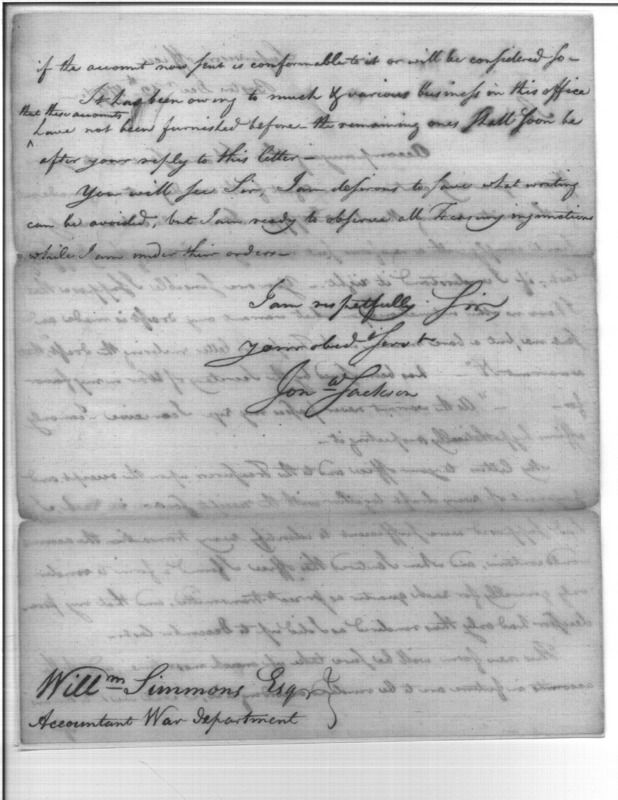 if the account now sent is conformable to it or will be considered so—
It has been owing to much & various business in this office
that these accounts
^ have not been furnished before— the remaining ones shall soon be
after your reply to this letter—
You will see Sir, I am desirous to save what writing
can be avoided, but I am ready to observe all Treasury
while I am under their orders—
I am respectfully Sir,
your obed. Servt
Jonᵃ Jackson
Willᵐ Simmons Esqr }
Accountant War department